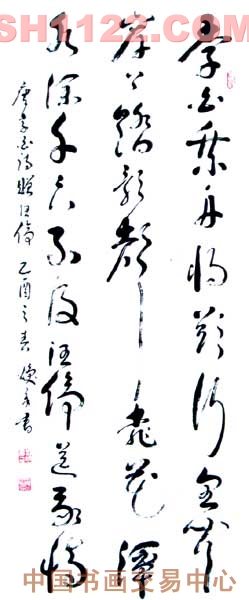 SH1122.COM
李白乘舟将欲行忽闻
岸上踏歌声桃花潭
水深千尺不及汪伦送我情
唐李白诗赠汪伦 乙酉之春
中国书画交易中心